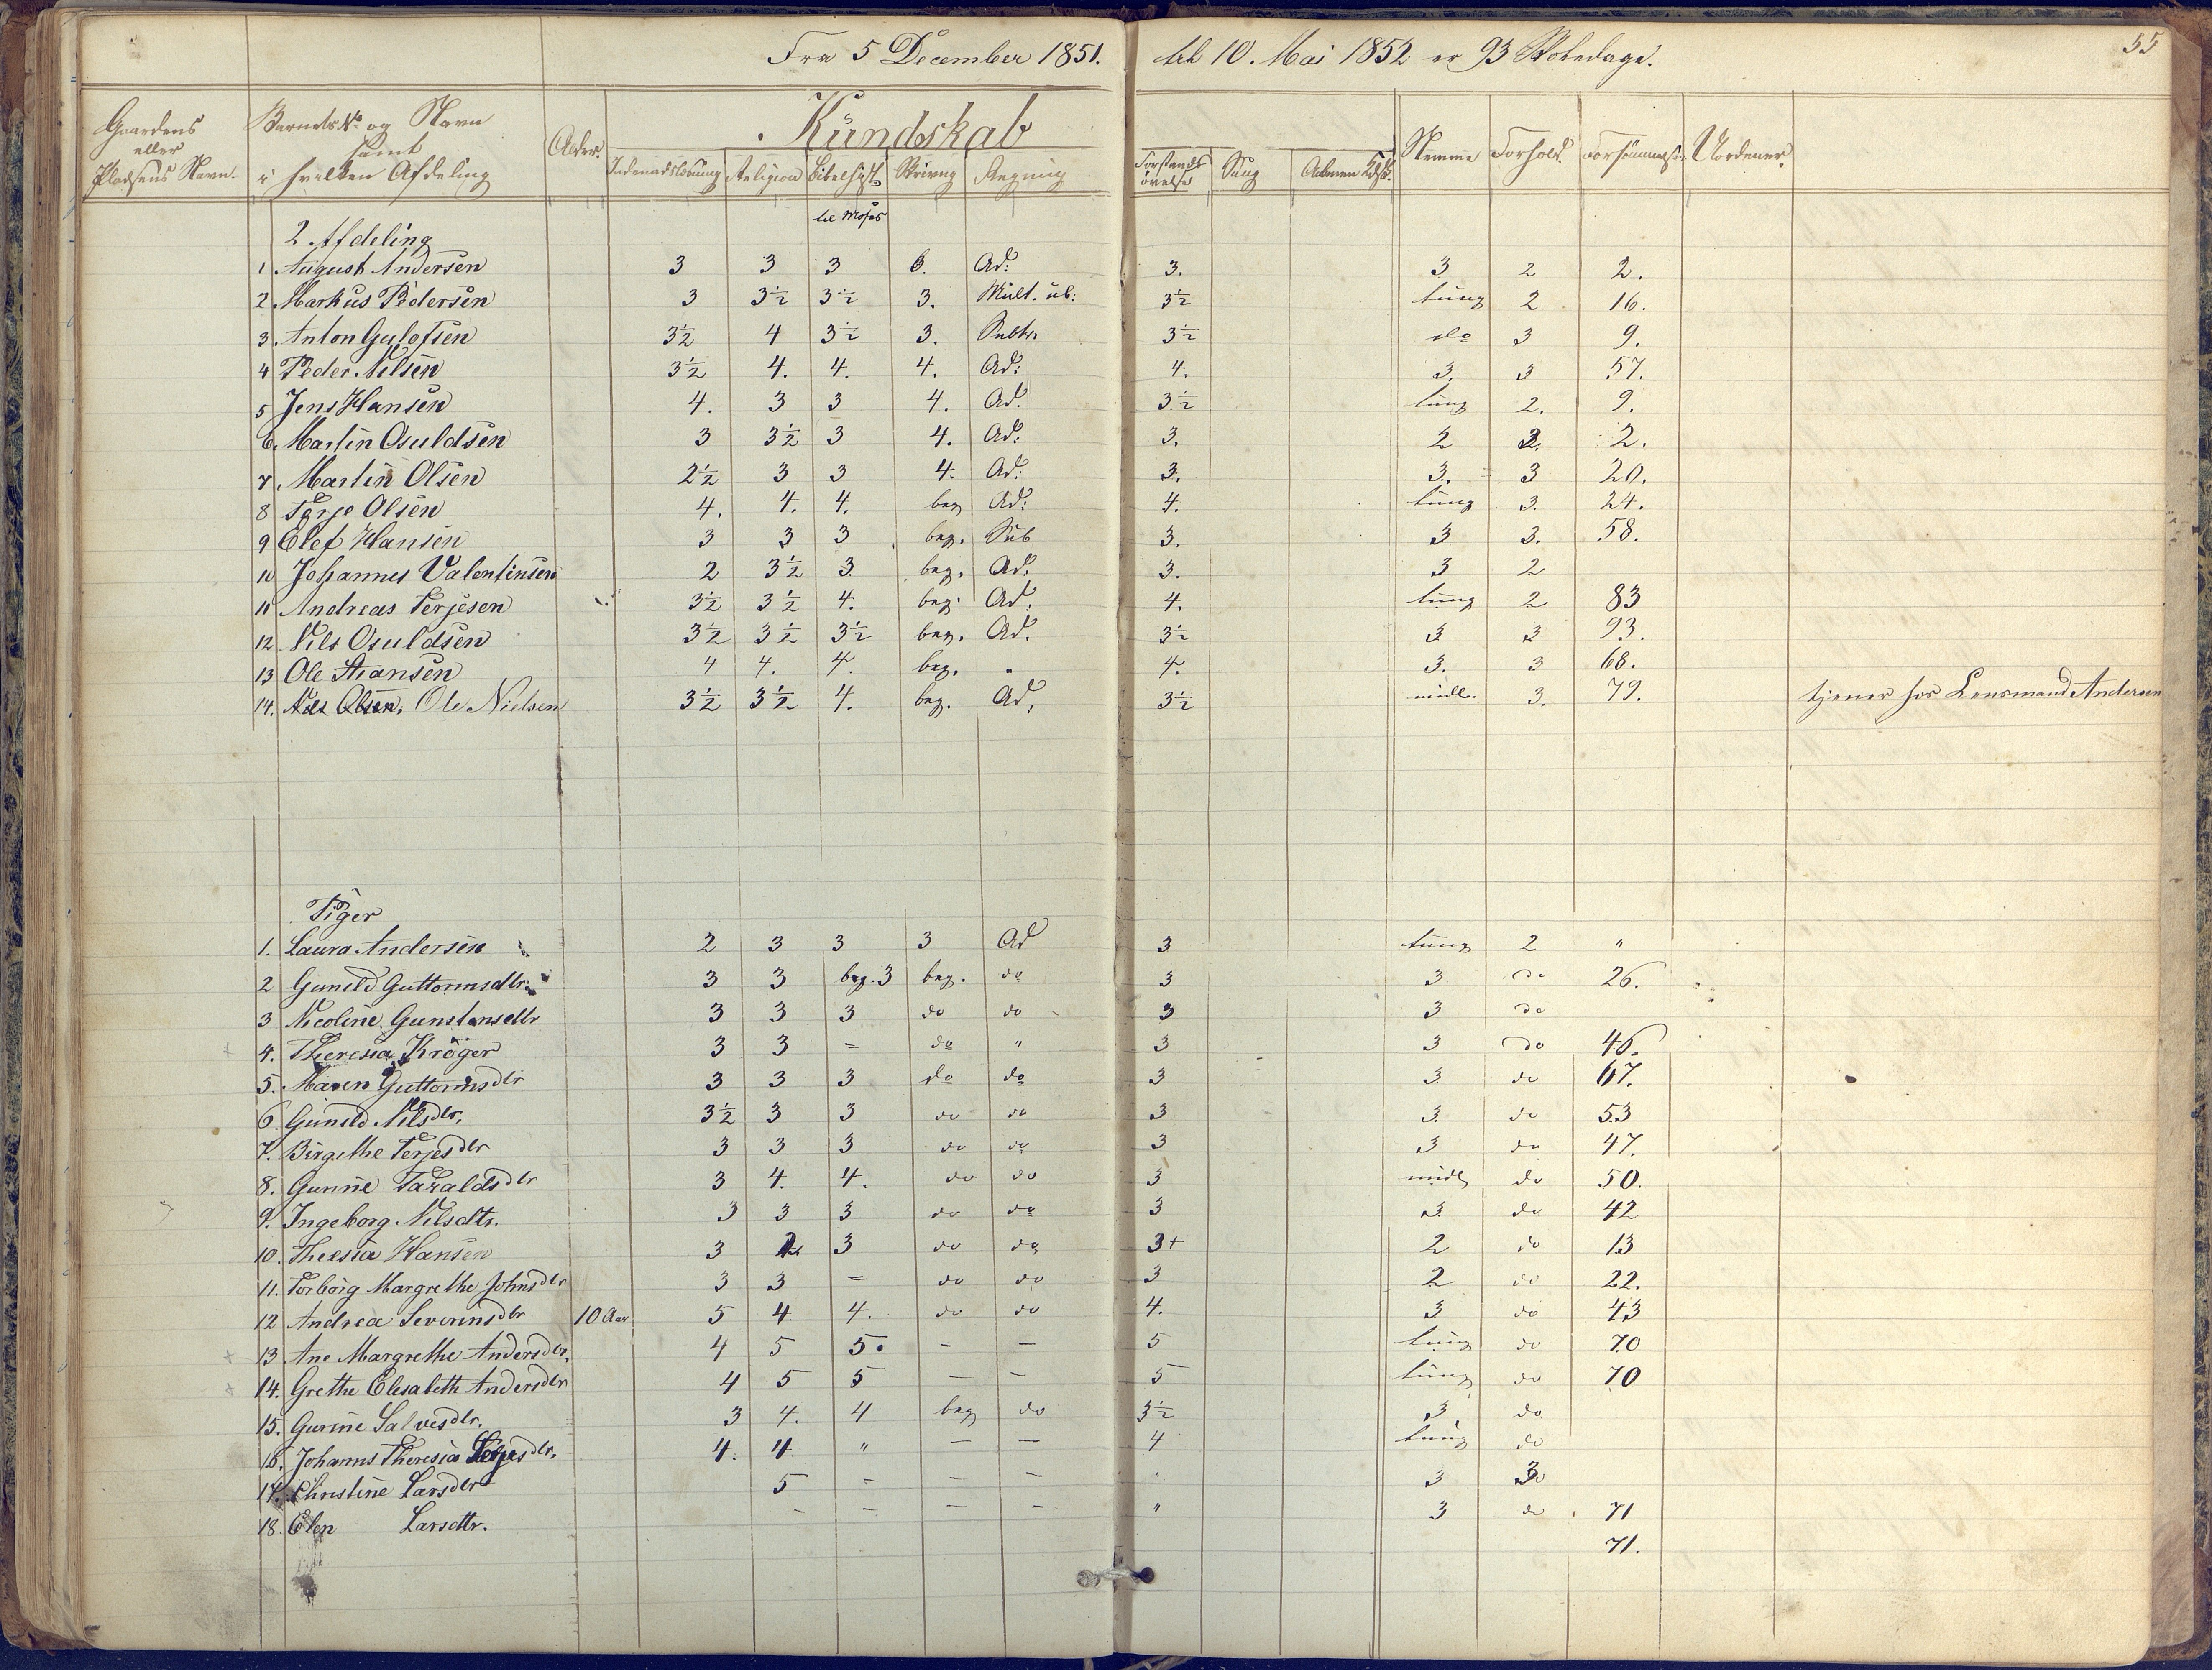 Fra 5 December 1851. til 10. Mai 1852 er 93 Skoledage. 55
Gaardens eller Pladsens Navn. Barnets No og Navn samt i hvilken Afdeling Alder. Kundskab Stemme Forhold. Forsømmelser Uordener
Indenadslæsning Religion Bibelhist. Skrivng Regning Forstands øvelse Sang Almen Kdsk.
til Moses
2. Afdeling
1 August Andersen 3 3 3 3. Ad: 3. 3 2 2.
2 Markus Pedersen 3 3½ 3½ 3. Mult. ub: 3½ tung 2 16.
3 Anton Gulofsen 3½ 4 3½ 3. Subtr. 3½ do 3 9.
4 Peder Nilsen 3½ 4. 4. 4. Ad: 4. 3. 3 57.
5 Jens Hansen 4. 3 3 4. Ad. 3½ tung 2. 9.
6. Martin Osuldsen 3 3½ 3 4. Ad: 3. 2 2. 2.
7 Martin Olsen 2½ 3 3 4. Ad: 3. 3. 3 20.
8 Terje Olsen 4. 4. 4. beg Ad: 4. tung 3. 24.
9 Elef Hansen 3 3 3 beg. Sub 3. 3 3. 58.
10 Johannes Valentinsen 2 3½ 3 beg. Ad. 3. 3 2
11 Andreas Terjesen 3½ 3½ 4. beg. Ad. 4. tung 2 83
12 Nils Osuldsen 3½ 3½ 3½ beg. Ad. 3½ 3 3 93.
13 Ole Stiansen 4 4. 4. beg. " 4. 3. 3 68.
14. Nils Olsen. Ole Nielsen 3½ 3½ 4. beg. Ad, 3½ midl. 3. 79. tjener hos Lensmand Andersen
Piger
1. Laura Andersen 2 3 3 3 Ad 3 tung 2 "
2 Guneld Guttormsdtr: 3 3 beg. 3 beg. do 3 3 do 26.
3 Nicoline Gunstensdtr 3 3 3 do do 3 3 do
4. Theresia Krøger 3 3 = do " 3 3 do 46.
5. Maren Guttormsdtr 3 3 3 do do 3 3 do 67.
6. Guneld Nilsdtr. 3½ 3 3 do do 3 3. do 53
7. Birgithe Terjesdtr 3 3 3 do do 3 3 do 47.
8. Gunne Taraldsdtr 3 4. 4. do do 3 midl do 50.
9. Ingeborg Nilsdtr. 3 3 3 do do 3 3 do 42
10. Theesia Hansen 3 2 3 do do 3+ 2 do 13
11. Torborg Margrethe Johnsdtr 3 3 = do do 3 2 do 22.
12 Andrea Severinsdtr 10 Aar 5 4 4. do do 4. 3 do 43
13 Ane Margrethe Andersdtr. 4 5 5. – – 5 tung do 70
14. Grethe Elisabeth Andersdtr 4 5 5 – – 5 tung do 70
15. Gurine Salvesdtr. 3 4. 4 beg do 3½ 3 do
16. Johanns Theresia Terjesdtr. 4. 4 " – – 4 tung do
17. Christine Larsdtr 5 – – – " 3 3
18. Elen Larsdtr. – – – – " 3 do 71
71.